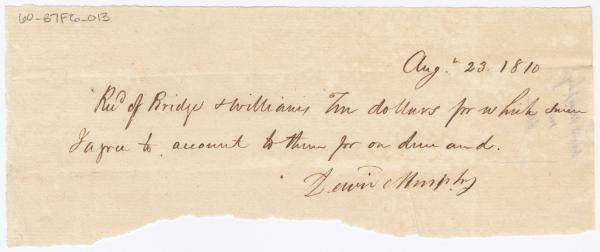 60-B7F6-013
Augt 23. 1810
Recd of Bridge & Williams Ten dollars for which sum
I agree to account to them for on demand.
Murphy